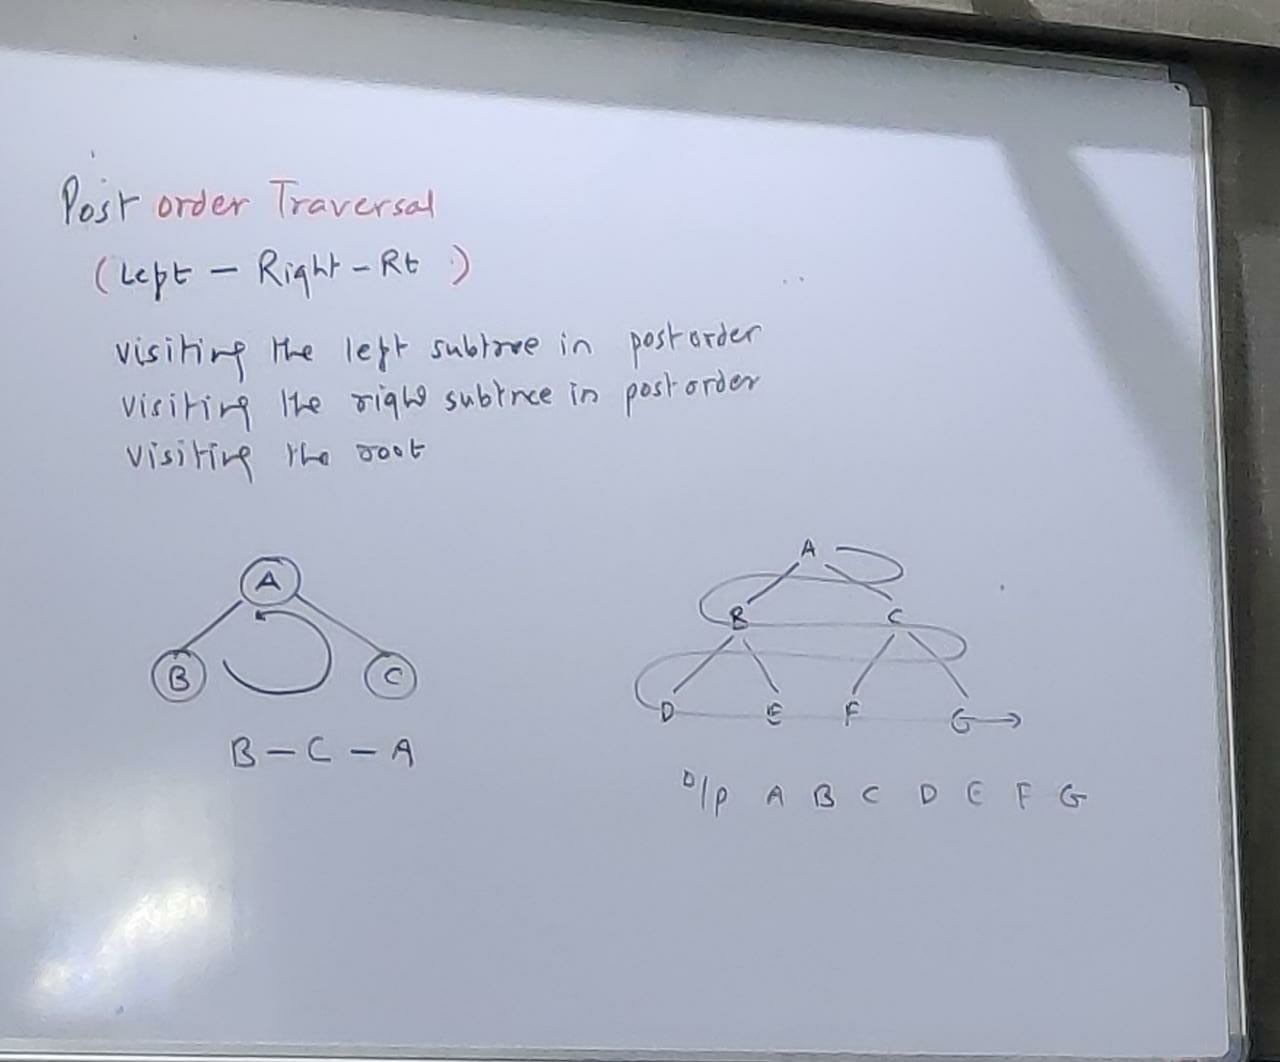 Post order Traversal
(Left - Right - Rt )
visiting the left subtree in postorder
visiting the right subtree in postorder
visiting the root
A
B C
B - C - A
A
B C
D E F G
O/p A B C D E F G